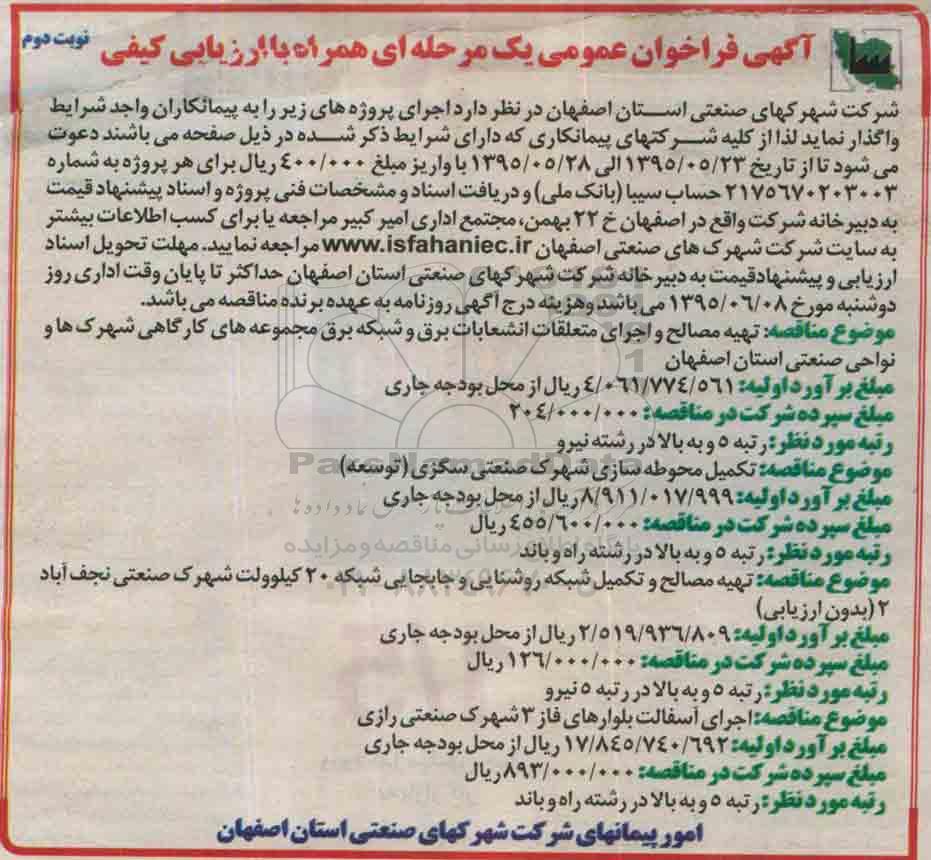 نوبت دوم
آگهی فراخوان عمومی یک مرحله ای همراه با ارزیابی کیفی
شرکت شهرکهای صنعتی استان اصفهان در نظر دارد اجرای پروژه های زیر را به پیمانکاران واجد شرایط
واگذار نماید لذا از کلیه شرکتهای پیمانکاری که دارای شرایط ذکر شده در ذیل صفحه می باشند دعوت
می شود تا از تاریخ ۱۳۹۵/۰۵/۲۳ الی ۱۳۹۵/۰۵/۲۸ با واریز مبلغ ۴۰۰/۰۰۰ ریال برای هر پروژه به شماره
۲۱۷۵۶۷۰۲۰۳۰۰۳ حساب سیبا (بانک ملی) و دریافت اسناد و مشخصات فنی پروژه و اسناد پیشنهاد قیمت
به دبیرخانه شرکت واقع در اصفهان خ ۲۲ بهمن، مجتمع اداری امیر کبیر مراجعه یا برای کسب اطلاعات بیشتر
به سایت شرکت شهرک های صنعتی اصفهان www.isfahaniec.ir مراجعه نمایید. مهلت تحویل اسناد
ارزیابی و پیشنهادقیمت به دبیرخانه شرکت شهرکهای صنعتی استان اصفهان حداکثر تا پایان وقت اداری روز
دوشنبه مورخ ۱۳۹۵/۰۶/۰۸ می باشد وهزینه درج آگهی روزنامه به عهده برنده مناقصه می باشد.
موضوع مناقصه: تهیه مصالح و اجرای متعلقات انشعابات برق و شبکه برق مجموعه های کارگاهی شهرک ها و
نواحی صنعتی استان اصفهان
مبلغ برآورد اولیه: ۴/۰۶۱/۷۷۴/۵۶۱ ریال از محل بودجه جاری
مبلغ سپرده شرکت در مناقصه: ۲۰۴/۰۰۰/۰۰۰
رتبه مورد نظر: رتبه ۵ و به بالا در رشته نیرو
موضوع مناقصه: تکمیل محوطه سازی شهرک صنعتی سگزی (توسعه)
مبلغ برآورد اولیه: ۸/۹۱۱/۰۱۷/۹۹۹ ریال از محل بودجه جاری
مبلغ سپرده شرکت در مناقصه: ۴۵۵/۶۰۰/۰۰۰ ریال
رتبه مورد نظر: رتبه ۵ و به بالا در رشته راه و باند
موضوع مناقصه: تهیه مصالح و تکمیل شبکه روشنایی و جابجایی شبکه ۲۰ کیلوولت شهرک صنعتی نجف آباد
۲ (بدون ارزیابی)
مبلغ برآورد اولیه: ۲/۵۱۹/۹۳۶/۸۰۹ ریال از محل بودجه جاری
مبلغ سپرده شرکت در مناقصه: ۱۲۶/۰۰۰/۰۰۰ ریال
رتبه مورد نظر: رتبه ۵ و به بالا در رتبه ۵ نیرو
موضوع مناقصه: اجرای آسفالت بلوارهای فاز ۳ شهرک صنعتی رازی
مبلغ برآورد اولیه: ۱۷/۸۴۵/۷۴۰/۶۹۲ ریال از محل بودجه جاری
مبلغ سپرده شرکت در مناقصه: ۸۹۳/۰۰۰/۰۰۰ ریال
رتبه مورد نظر: رتبه ۵ و به بالا در رشته راه و باند
امور پیمانهای شرکت شهرکهای صنعتی استان اصفهان
ParsNamadData
پایگاه اطلاع رسانی مناقصه و مزایده